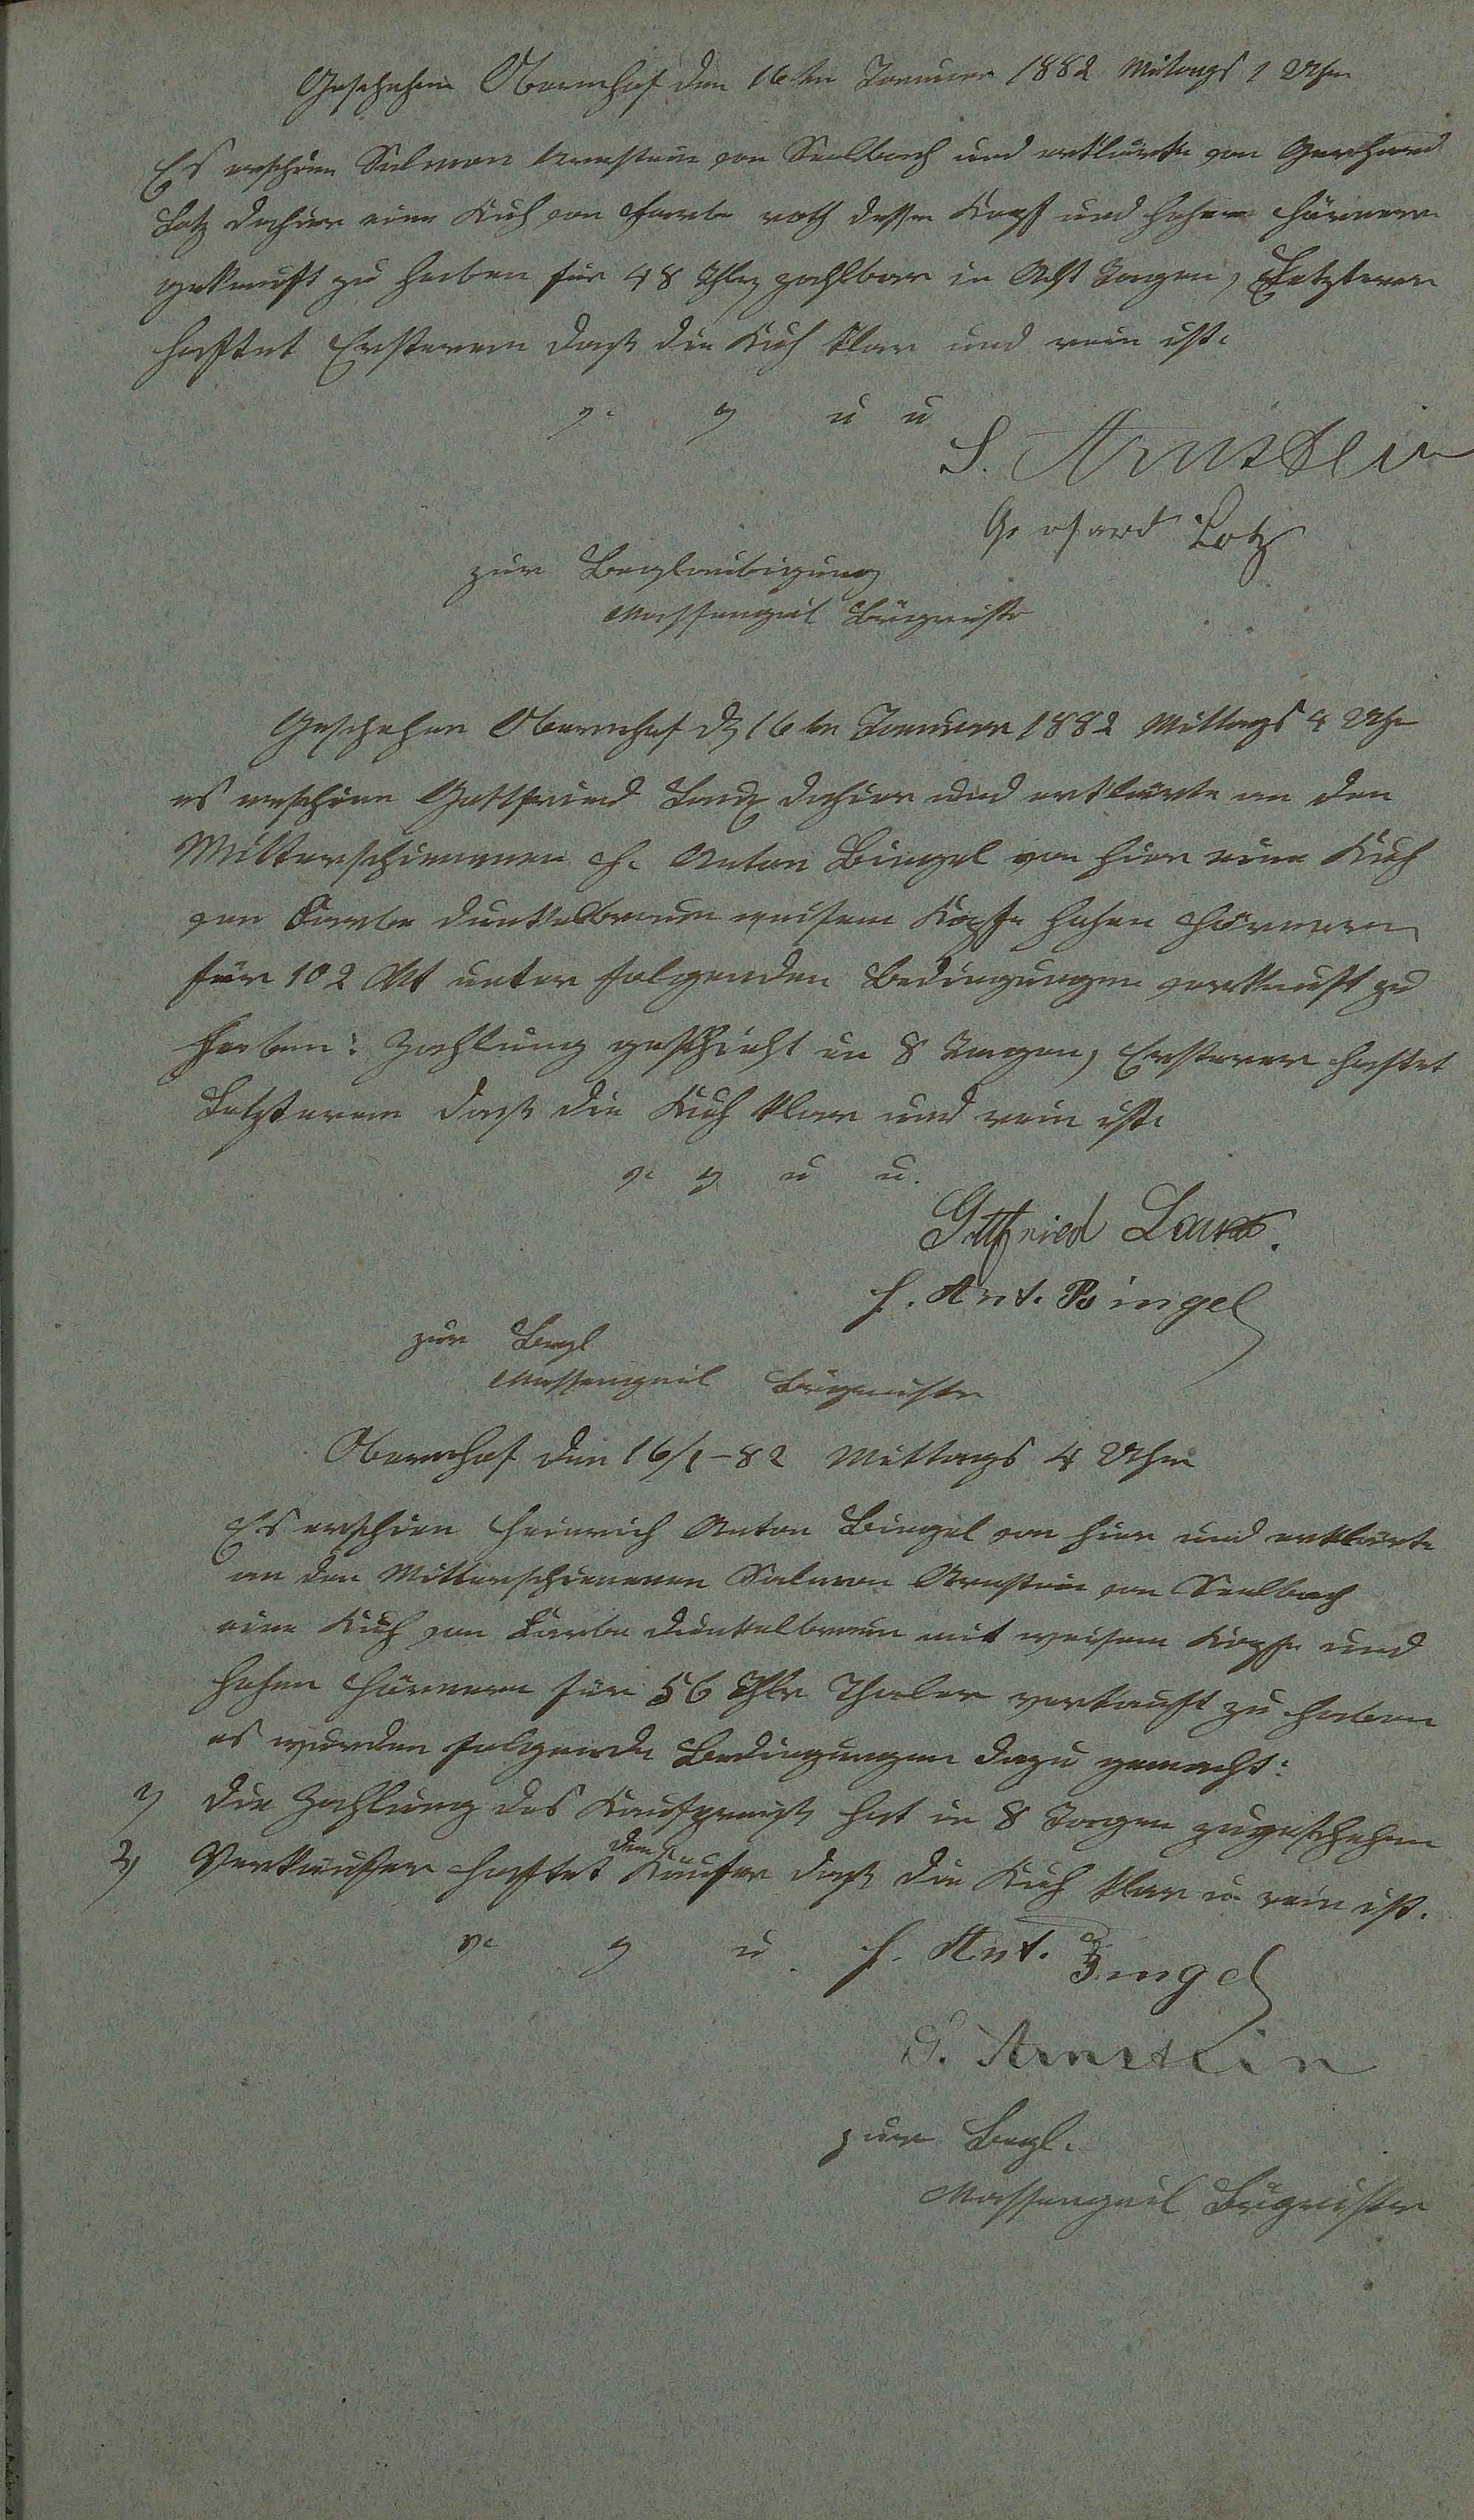 Geschehen Obernhof den 16ten Januar 1882 Mitags 1 Uhr
Es erschien Salmon Arnstein von Seelbach und erklärte von Gerhard
Lotz dahier eine Kuh von Farbe roth dessen Kopf und hohen Hörnern
gekauft zu haben für 48 Thlr zahlbar in Acht Tagen, Letzterer
haftet Ersterem daß die Kuh klar und rein ist.
v. g u u
S. Arnstein
Gerhard Lotz
zur Beglaubigung
Massengeil Bürgmeister
Geschehen Obernhof d 16ten Januar 1882 Mittags 4 Uhr
es erschien Gottfried Laux dahier und erklärte an den
Mitterschienenen H. Anton Bingel von hier eine Kuh
von Farbe dunkelbraun weisem Kopfe hohen Hörnern
für 102 M unter folgenden Bedingungen verkauft zu
haben: Zahlung geschieht in 8 Tagen, Ersterer haftet
Letzterem daß die Kuh klar und rein ist.
v. g u u.
Gottfried Laux.
H. Ant. Bingel
zur Begl
Massengeil Bürgmeister
Obernhof den 16/1-82 Mittags 4 Uhr
Es erschien Heinrich Anton Bingel von hier und erklärte
an den Mitterschienenen Salmon Arnstein von Seelbach
eine Kuh von Farbe dunkelbraun mit weisem Kopfe und
hohen Hörnern für 56 Thlr Thaler verkauft zu haben
es wurden folgende Bedingungen dazu gemacht:
1) die Zahlung des Kaufpreiß hat in 8 Tagen zugeschehen
2) Verkäufer haftet dem Käufer daß die Kuh klar u. rein ist.
v. g u. H. Ant. Bingel
S. Arnstein
zur Begl.
Massengeil Bürgmeister